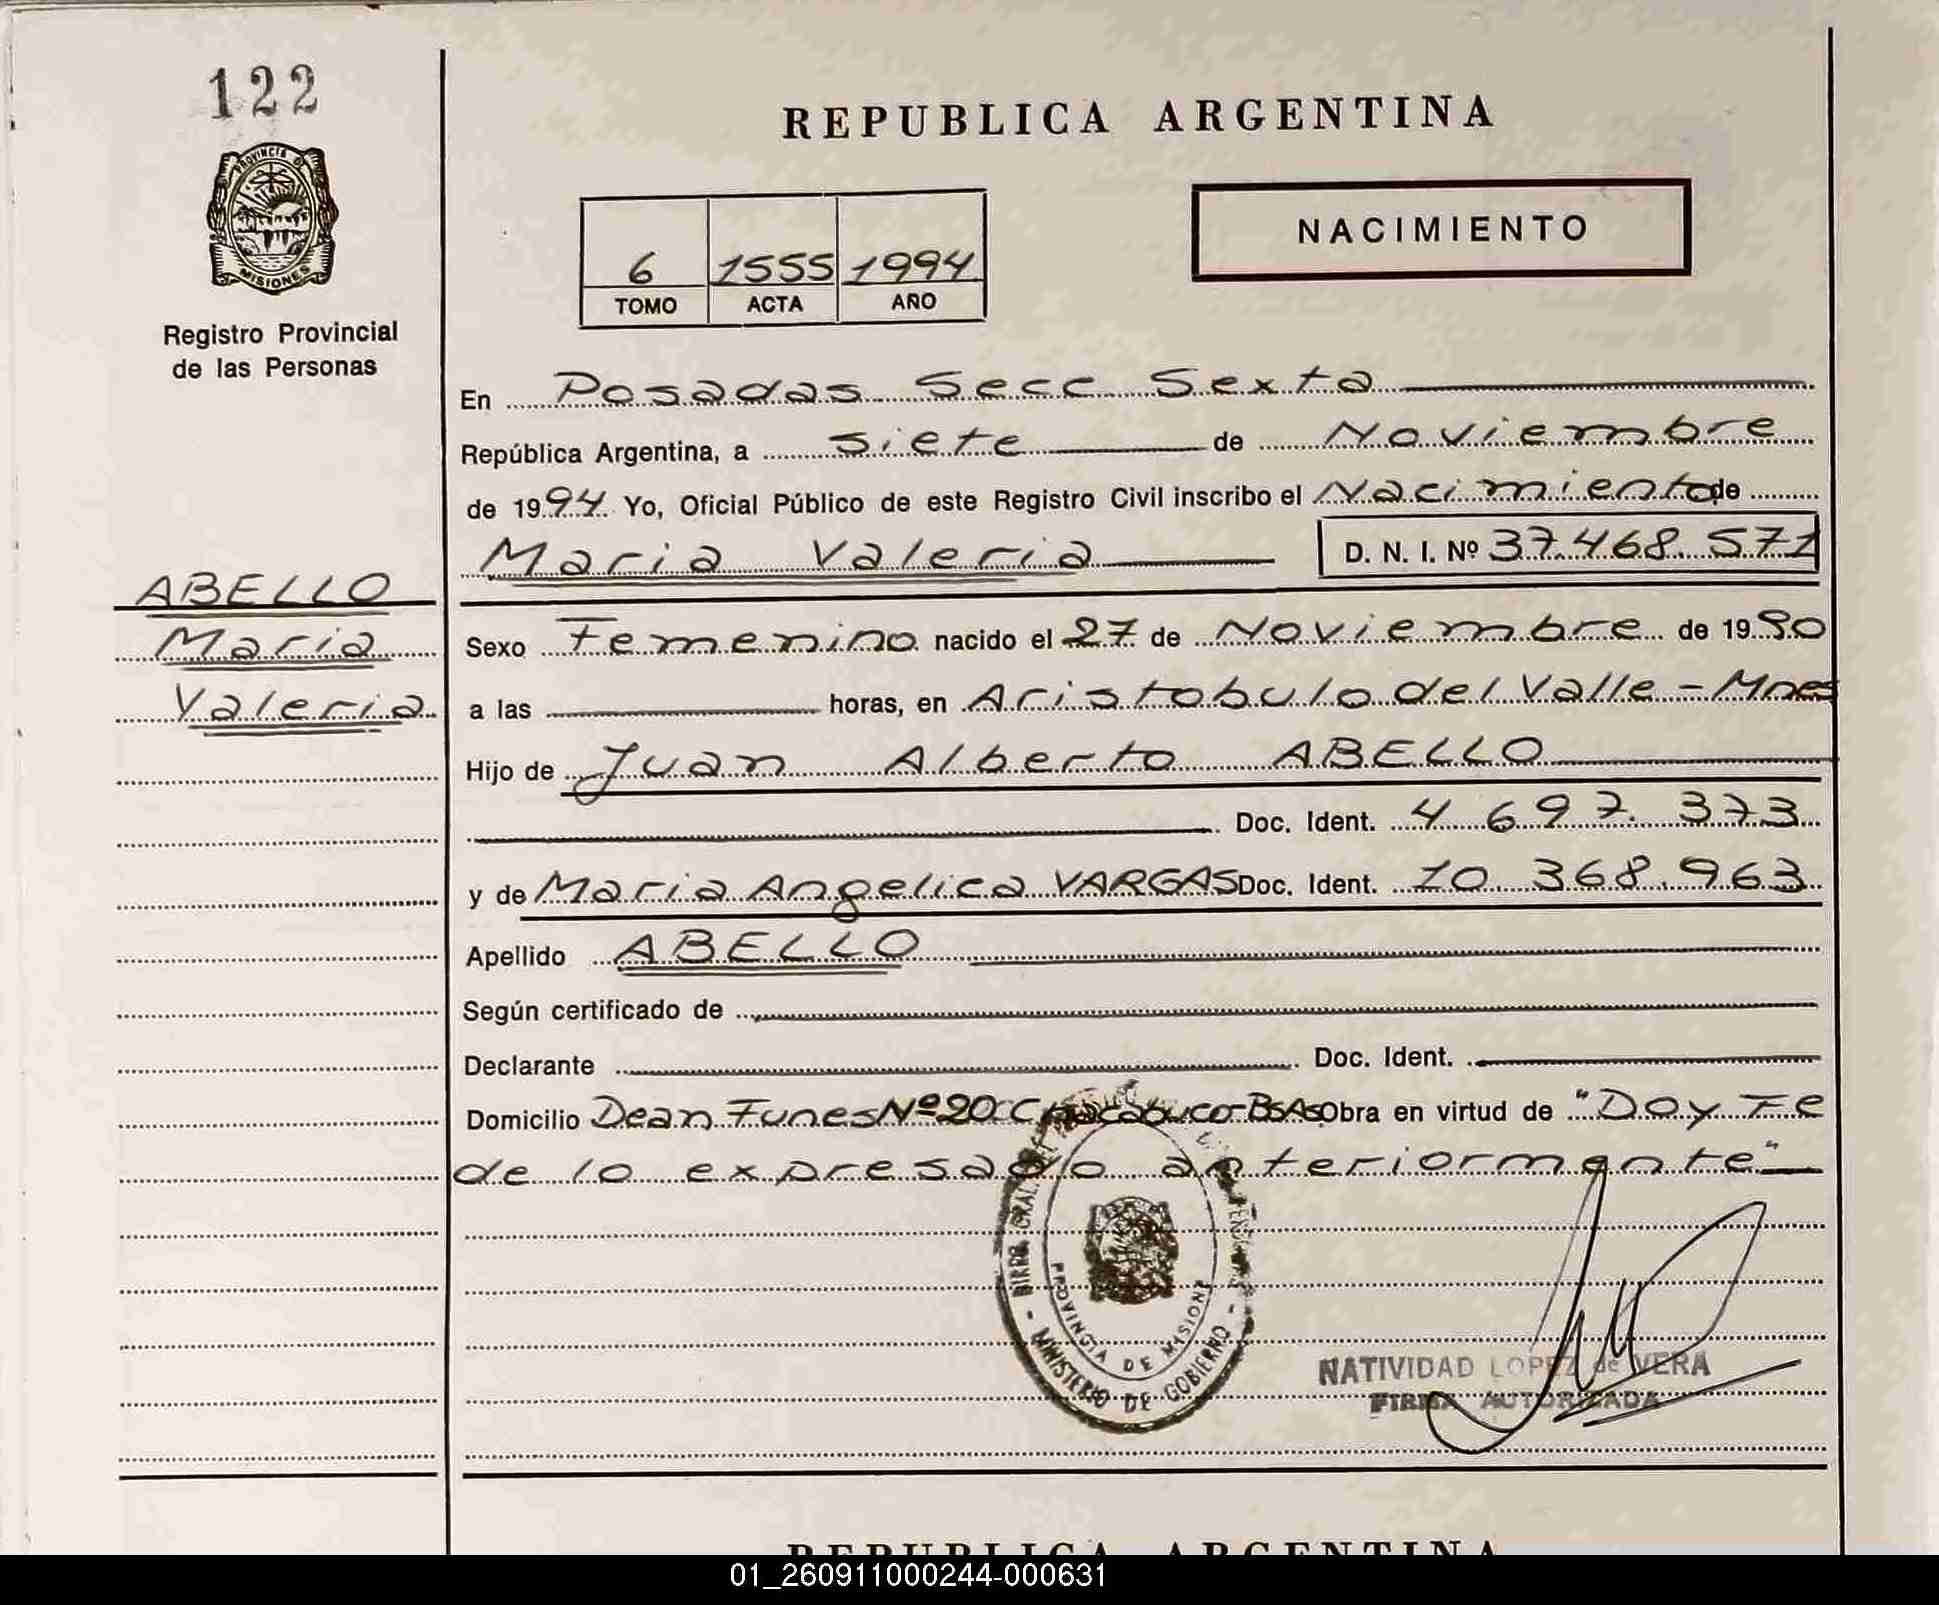 122
REPUBLICA ARGENTINA
PROVINCIA DE
MISIONES
Registro Provincial
de las Personas
NACIMIENTO
6 1555 1994
TOMO ACTA AÑO
En Posadas Secc Sexta
República Argentina, a siete de Noviembre
de 1994 Yo, Oficial Público de este Registro Civil inscribo el Nacimiento de
Maria Valeria D. N. I. Nº 37.468.571
ABELLO
Maria
Valeria
Sexo Femenino nacido el 27 de Noviembre de 1990
a las horas, en Aristobulo del Valle - Mnes
Hijo de Juan Alberto ABELLO
Doc. Ident. 4 697. 373
y de Maria Angelica VARGAS Doc. Ident. 10 368.963
Apellido ABELLO
Según certificado de
Declarante Doc. Ident.
Domicilio Dean Funes Nº 20 Chacabuco-BsAs Obra en virtud de "Doy Fe
de lo expresado anteriormente"
PROVINCIA DE MISIONES
MINISTERIO DE GOBIERNO
NATIVIDAD LOPEZ de VERA
FIRMA AUTORIZADA
REPUBLICA ARGENTINA
01_260911000244-000631